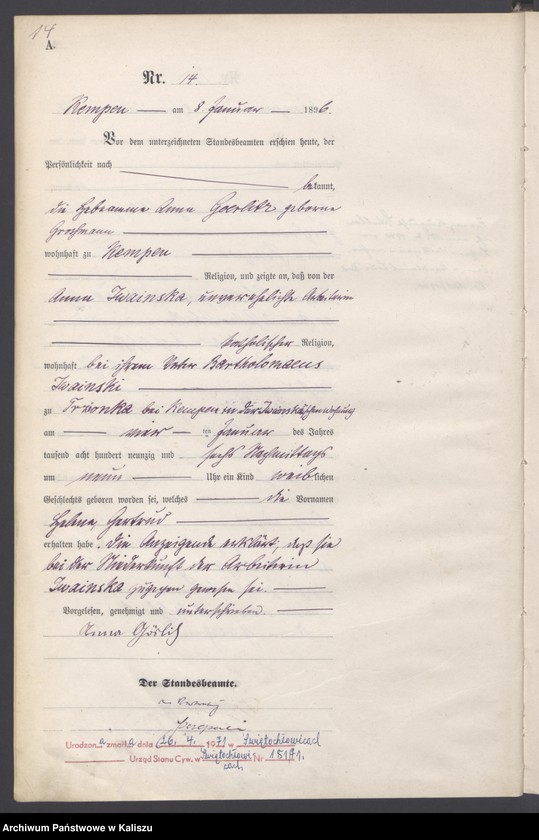 14
A.
Nr. 14.
Kempen am 8 Januar 1896.
Vor dem unterzeichneten Standesbeamten erschien heute, der
Persönlichkeit nach
bekannt,
die Hebeamme Anna Goerlitz geborne
Großmann
wohnhaft zu Kempen
Religion, und zeigte an, daß von der
Anna Iwainska, unverehelichte Arbeiterin
katholischer Religion,
wohnhaft bei ihrem Vater Bartholomaeus
Iwainski
zu bei Kempen in der Iwainskischen Wohnung
am vier ten Januar des Jahres
tausend acht hundert neunzig und sechs Nachmittags
um neun Uhr ein Kind weiblichen
Geschlechts geboren worden sei, welches die Vornamen
Helene, Gertrud
erhalten habe. Die Anzeigende erklärt, daß sie
bei der Niederkunft der Arbeiterin
Iwainska zugegen gewesen sei.
Vorgelesen, genehmigt und unterschrieben
Anna Görlitz
Der Standesbeamte.
Urodzona zmarła dnia 26. 4. 1971 w Świętochłowicach
Urząd Stanu Cyw. w Świętochłowicach Nr
Archiwum Państwowe w Kaliszu